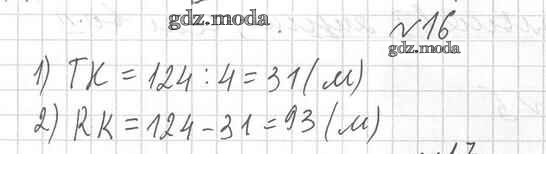 gdz.moda
№16
gdz.moda
1) TK = 124 : 4 = 31 (м)
2) RK = 124 - 31 = 93 (м)